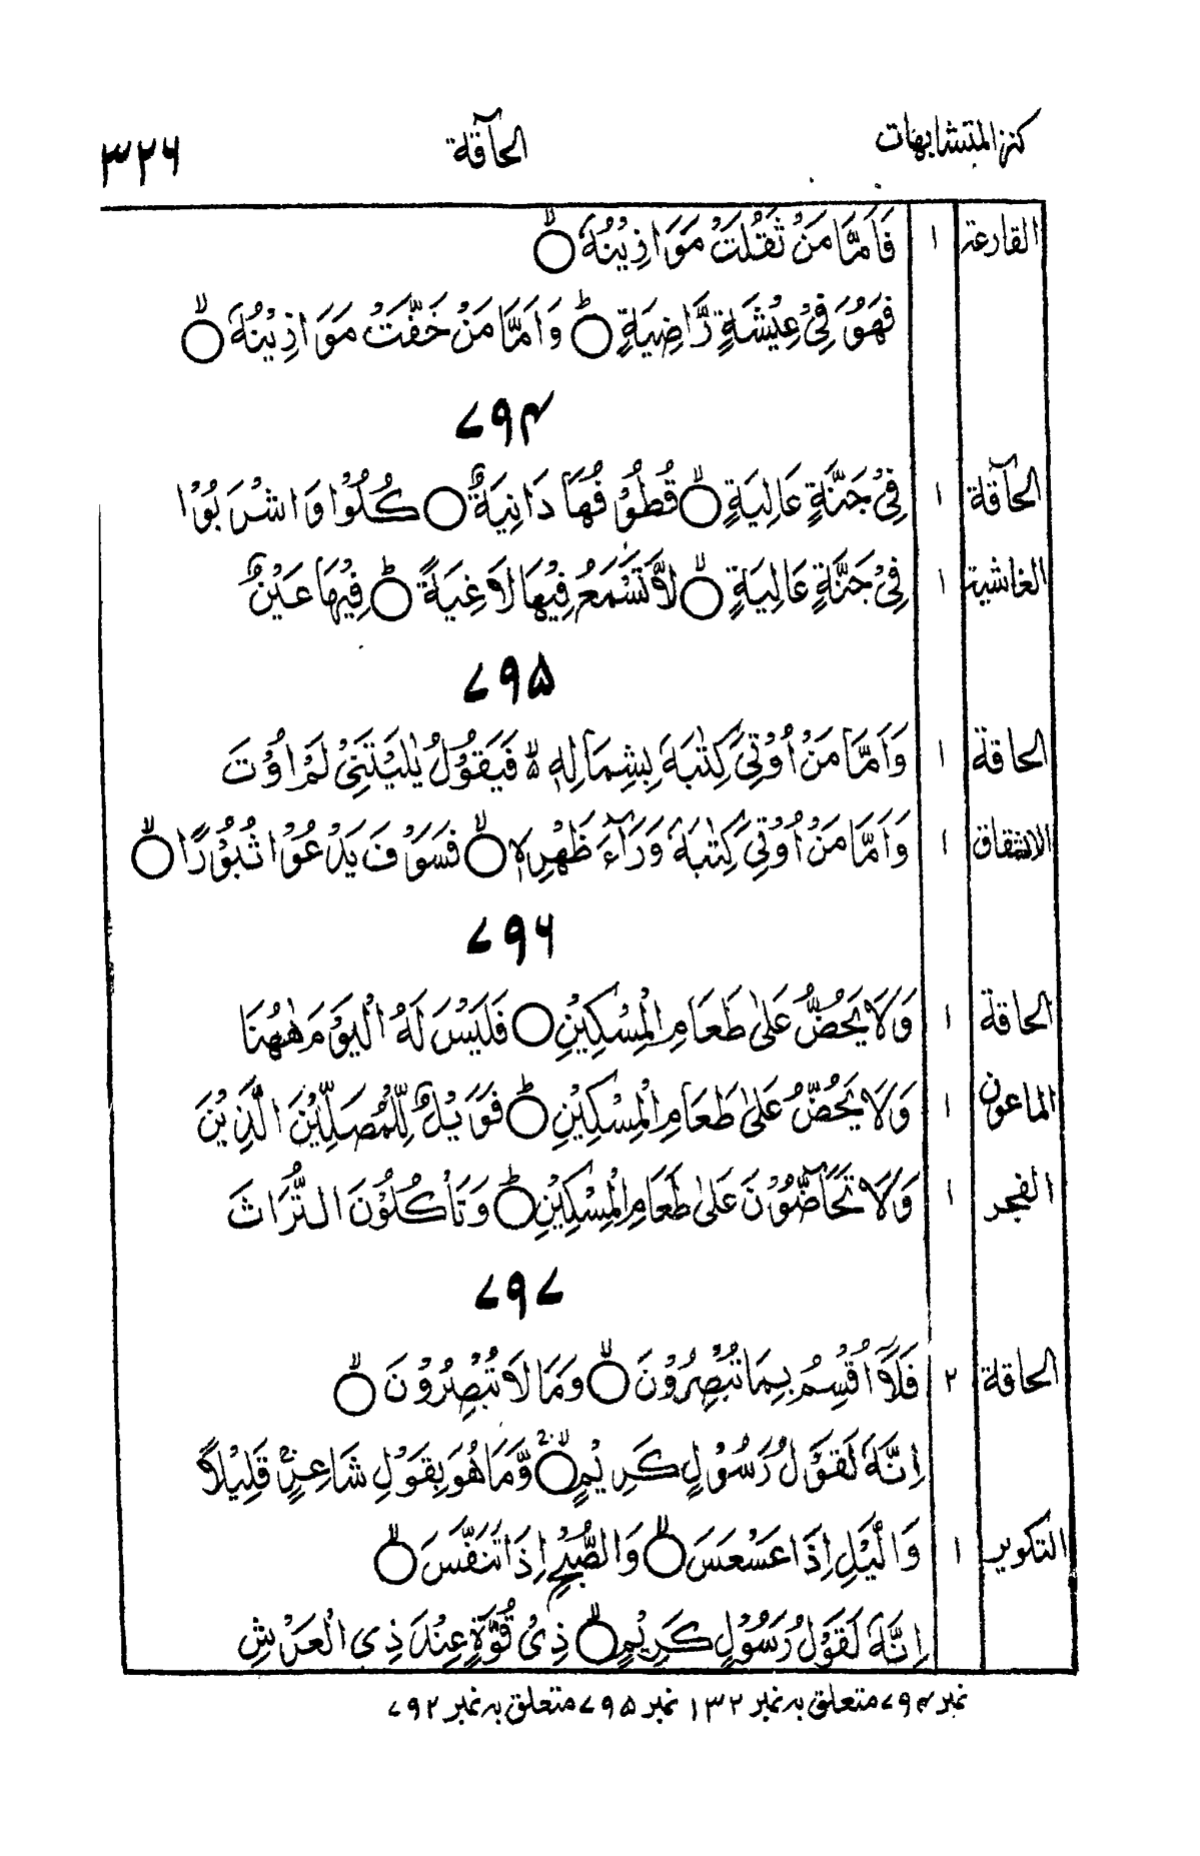 كنز المتشابهات الحآقة ۳۲۶
القارعة ۱ فَاَمَّا مَنْ ثَقُلَتْ مَوَازِيْنُهٗ ۝ۙ
فَهُوَ فِىْ عِيْشَةٍ رَّاضِيَةٍ ۝ؕ وَاَمَّا مَنْ خَفَّتْ مَوَازِيْنُهٗ ۝ۙ
۷۹۴
الحآقة ۱ فِىْ جَنَّةٍ عَالِيَةٍ ۝ۙ قُطُوْفُهَا دَانِيَةٌ ۝ كُلُوْا وَاشْرَبُوْا
الغاشية ۱ فِىْ جَنَّةٍ عَالِيَةٍ ۝ۙ لَّا تَسْمَعُ فِيْهَا لَاغِيَةً ۝ؕ فِيْهَا عَيْنٌ
۷۹۵
الحاقة ۱ وَاَمَّا مَنْ اُوْتِىَ كِتٰبَهٗ بِشِمَالِهٖ ۙ فَيَقُوْلُ يٰلَيْتَنِىْ لَمْ اُوْتَ
الانشقاق ۱ وَاَمَّا مَنْ اُوْتِىَ كِتٰبَهٗ وَرَآءَ ظَهْرِهٖ ۝ۙ فَسَوْفَ يَدْعُوْا ثُبُوْرًا ۝ۙ
۷۹۶
الحاقة ۱ وَلَا يَحُضُّ عَلٰى طَعَامِ الْمِسْكِيْنِ ۝ فَلَيْسَ لَهُ الْيَوْمَ هٰهُنَا
الماعون ۱ وَلَا يَحُضُّ عَلٰى طَعَامِ الْمِسْكِيْنِ ۝ؕ فَوَيْلٌ لِّلْمُصَلِّيْنَ الَّذِيْنَ
الفجر ۱ وَلَا تَحٰٓضُّوْنَ عَلٰى طَعَامِ الْمِسْكِيْنِ ۝ؕ وَتَاْكُلُوْنَ التُّرَاثَ
۷۹۷
الحاقة ۲ فَلَآ اُقْسِمُ بِمَا تُبْصِرُوْنَ ۝ۙ وَمَا لَا تُبْصِرُوْنَ ۝ۙ
اِنَّهٗ لَقَوْلُ رَسُوْلٍ كَرِيْمٍ ۝ۙ وَّمَا هُوَ بِقَوْلِ شَاعِرٍ ؕ قَلِيْلًا
التكوير ۱ وَالَّيْلِ اِذَا عَسْعَسَ ۝ۙ وَالصُّبْحِ اِذَا تَنَفَّسَ ۝ۙ
اِنَّهٗ لَقَوْلُ رَسُوْلٍ كَرِيْمٍ ۝ۙ ذِىْ قُوَّةٍ عِنْدَ ذِى الْعَرْشِ
نمبر ۷۹۴ متعلق بہ نمبر ۱۳۲ نمبر ۷۹۵ متعلق بہ نمبر ۷۹۲